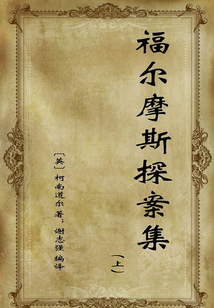 福尔摩斯探案集
（上）
［英］柯南道尔 著；谢志强 编译